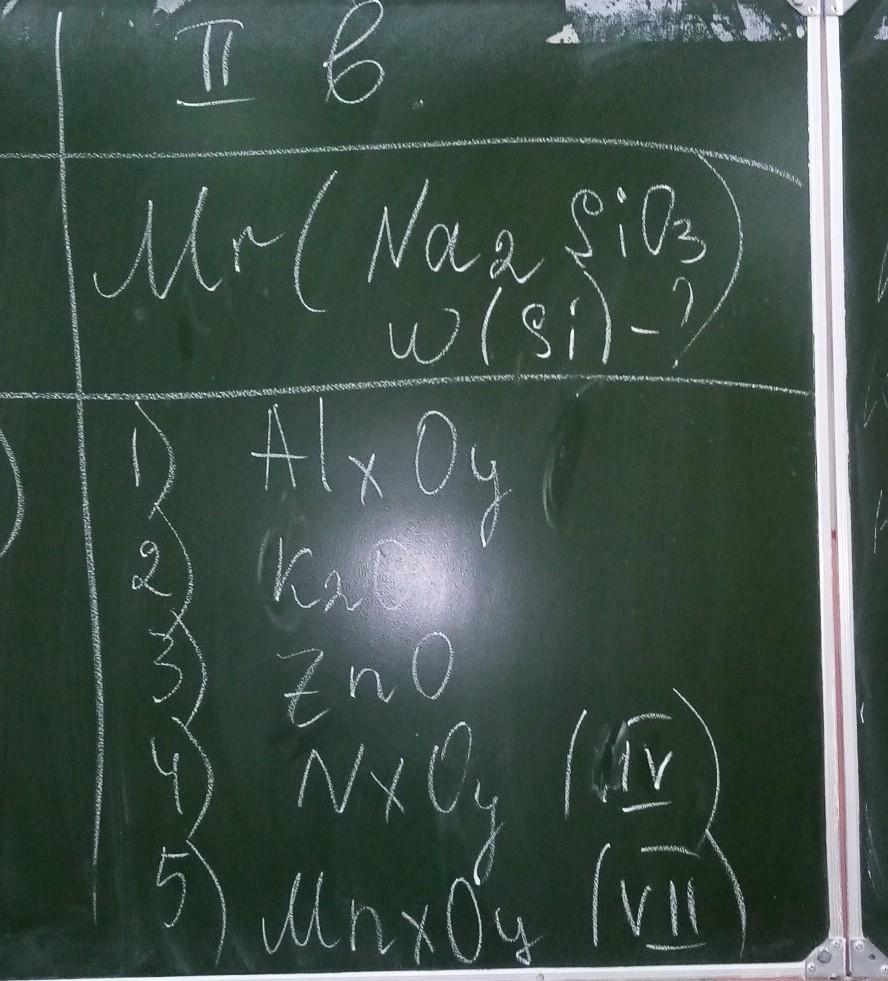 II в.
Mr(Na2SiO3)
w(Si)-?
1) AlxOy
2) K2O
3) ZnO
4) NxOy (IV)
5) MnxOy (VII)